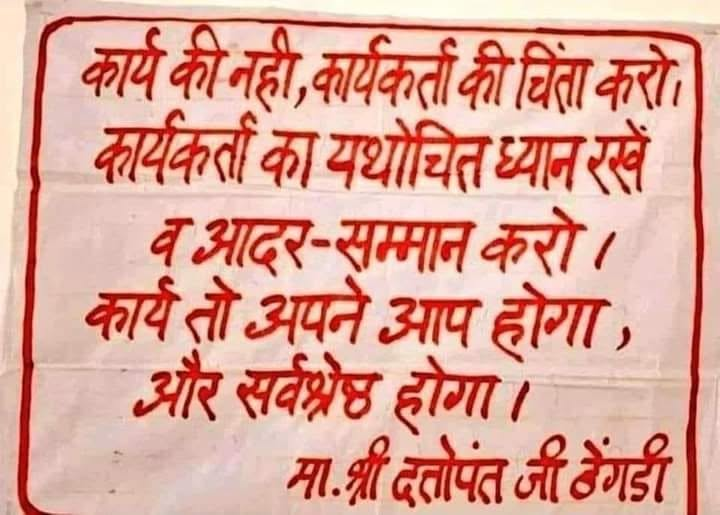 कार्य की नही, कार्यकर्ता की चिंता करो।
कार्यकर्ता का यथोचित ध्यान रखें
व आदर-सम्मान करो।
कार्य तो अपने आप होगा,
और सर्वश्रेष्ठ होगा।
मा. श्री दतोपंत जी ठेंगडी